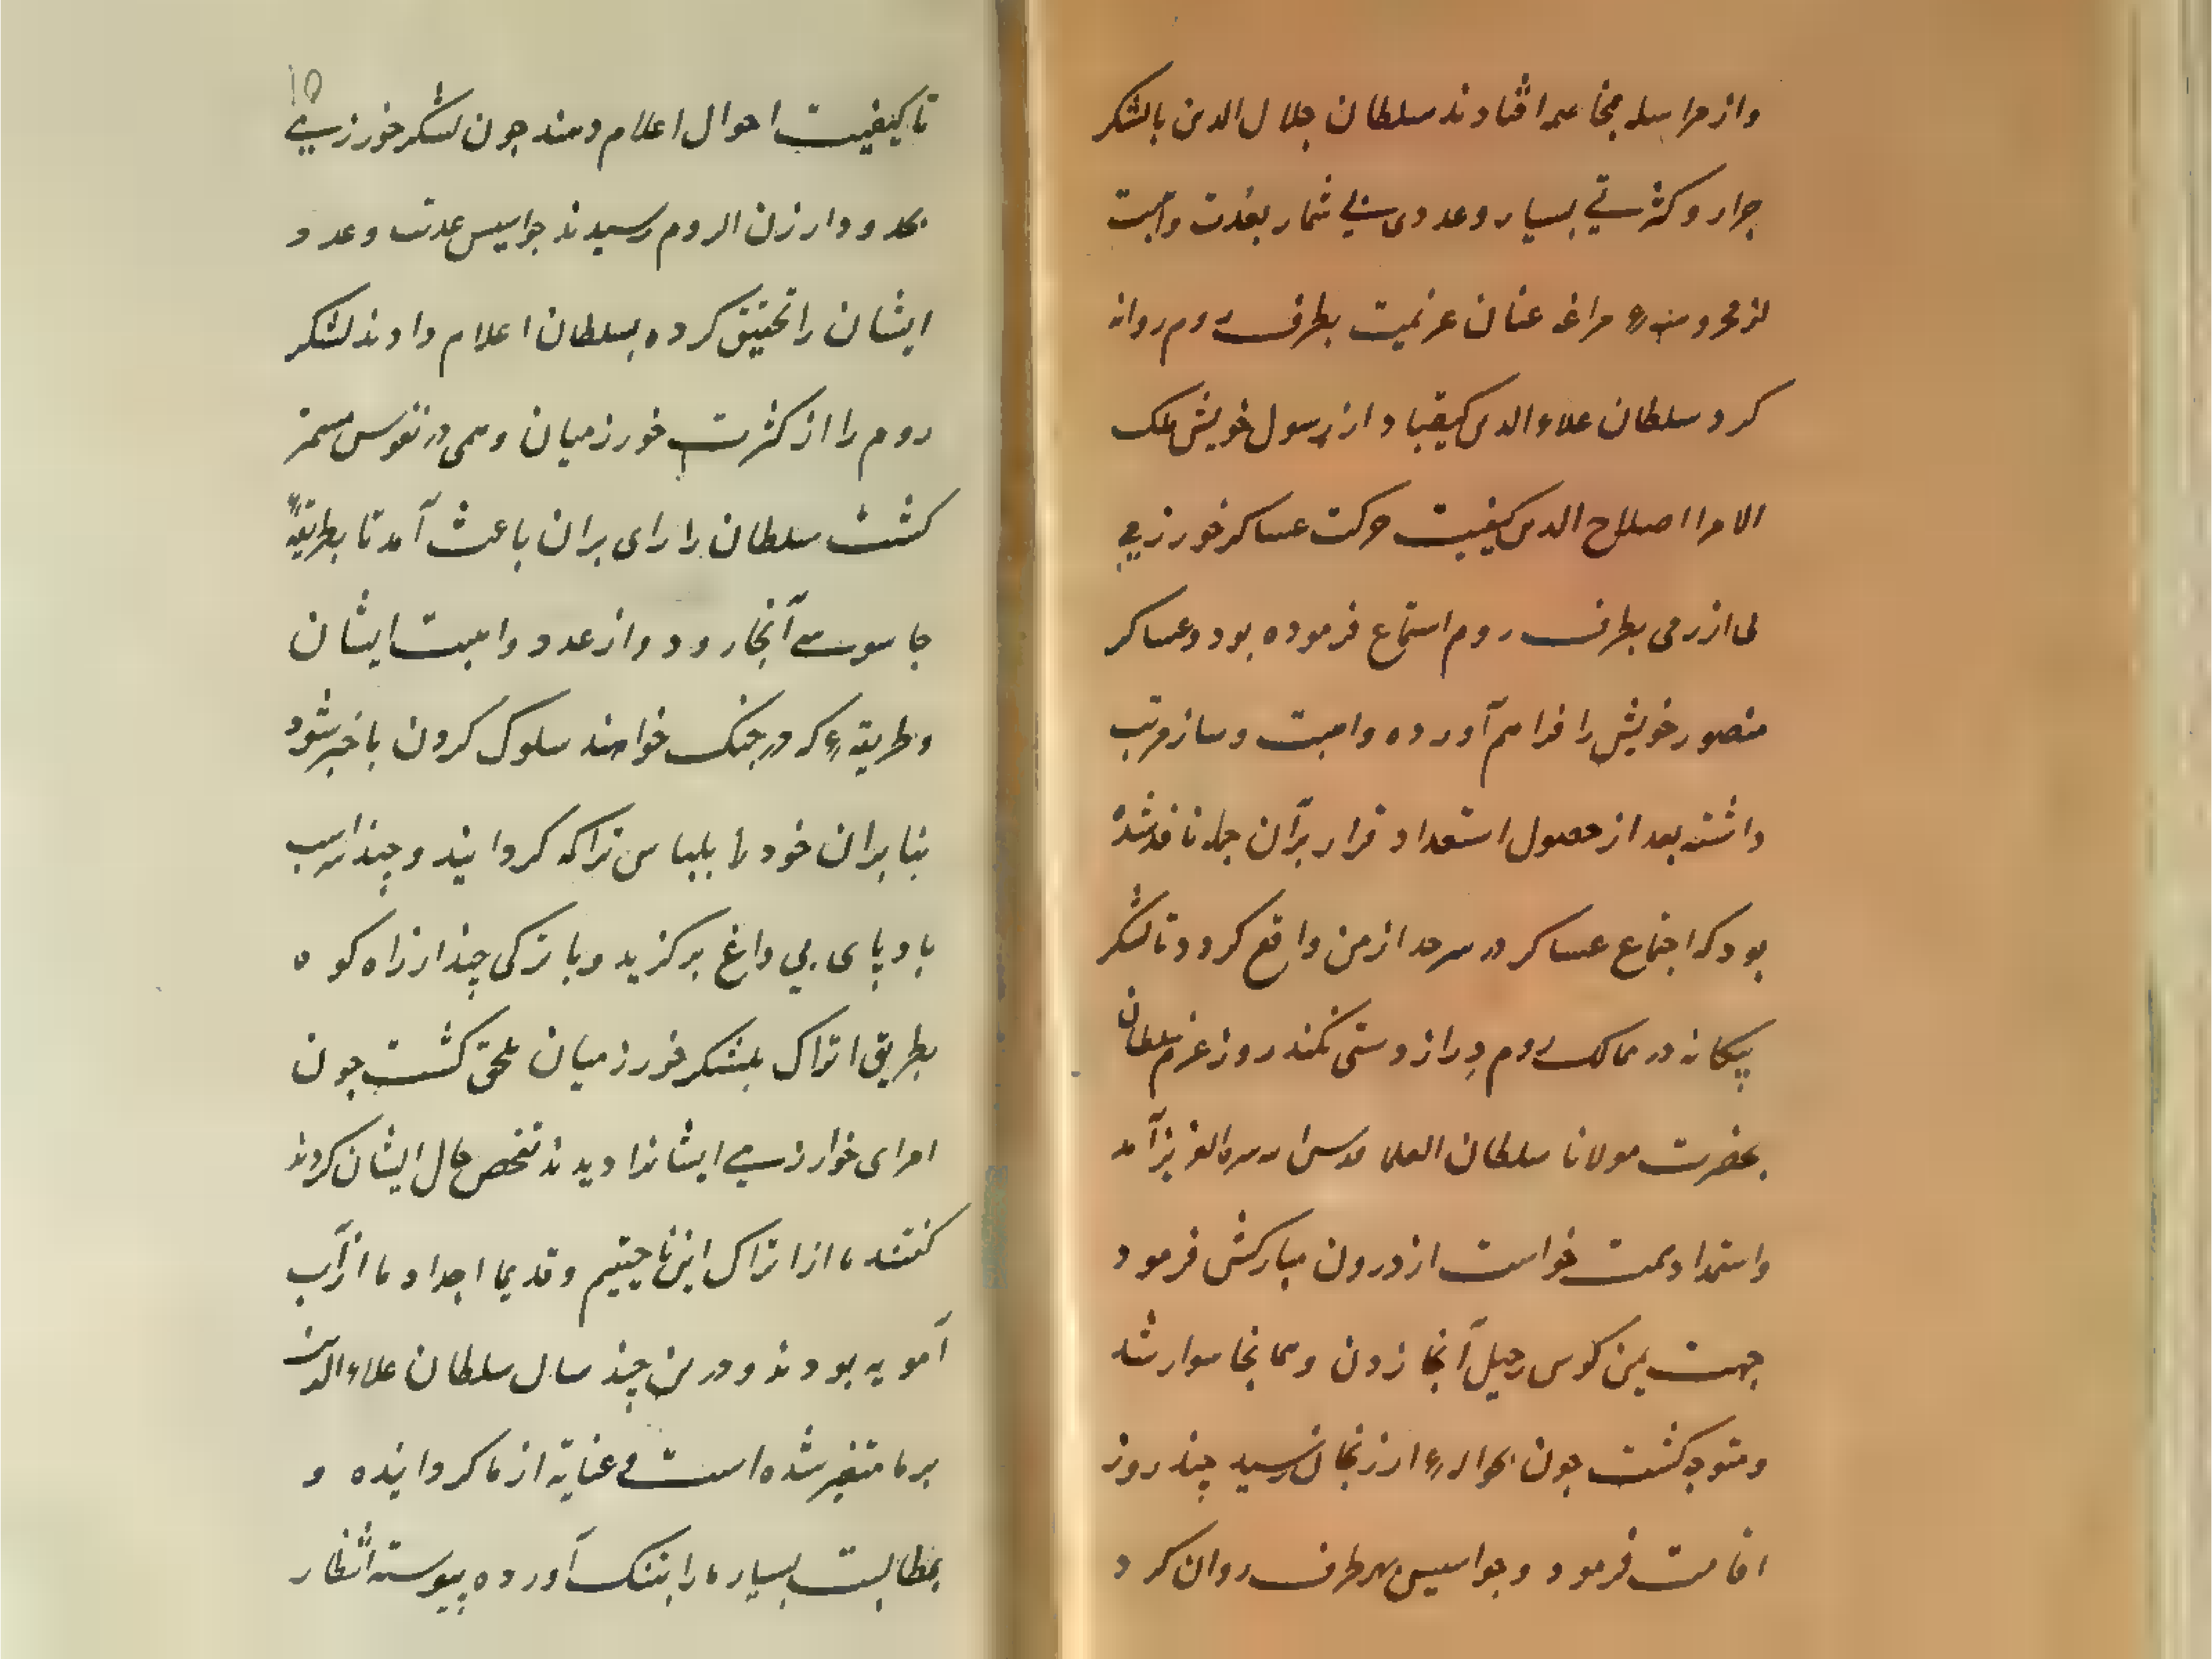 واز مراسله بمخاصمه افتادند سلطان جلال الدین بالشکر
جرار و کثرتی بسیار و عددی بی شمار بعدت واهبت
از محروسهٔ مراغه عنان عزیمت بطرف روم روانه
کرد سلطان علاء الدین کیقباد از رسول خویش ملک
الامرا اصلاح الدین کیفیت حرکت عساکر خورزمی
بطرف روم استماع فرموده بود و عساکر
منصور خویش را فراهم آورده واهبت و ساز مرتب
داشته بعد از حصول استعداد قرار بر آن جمله نافد شده
بود که اجتماع عساکر در سرحد ارزمن واقع کردد تا لشکر
بیکانه در ممالک روم دراز دستی نکند روز عزم سلطان
بحضرت مولانا سلطان العلما قدس الله سره العزیز آمد
واستمداد همت خواست از درون مبارکش فرمود
جهت یمن کوس رحیل آنجا زدن و همانجا سوار شد
و متوجه کشت چون بحوالیء ارزنجان رسید چند روز
اقامت فرمود و جواسیس بهر طرف روان کرد
۱۵
تا کیفیت احوال اعلام دهند چون لشکر خورزمی
بحدود ارزن الروم رسیدند جواسیس عدت و عدد
ایشان را تحقیق کرده بسلطان اعلام دادند لشکر
روم را از کثرت خورزمیان وهمی در نفوس مستمر
کشت سلطان را رای بران باعث آمد تا بطریقهٔ
جاسوسی آنجا رود و از عدد واهبت ایشان
و طریقهٔ که در جنک خواهند سلوک کردن باخبر شود
بنابران خود را بلباس تراکه کردانید و چند اسب
باد پای بی داغ برکزید و با ترکی چند از راه کوه
بطریق اتراک بلشکر خورزمیان ملحق کشت چون
امرای خوارزمی ایشانرا دیدند تفحص حال ایشان کردند
کفتند ما از اتراک این ناحیتیم و قدیما اجداد ما از آب
آمویه بودند و درین چند سال سلطان علاء الدین
بر ما متغیر شده است و عنایة از ما کردانیده و
بمطالبت بسیار ما را بتنک آورده پیوسته انتظار